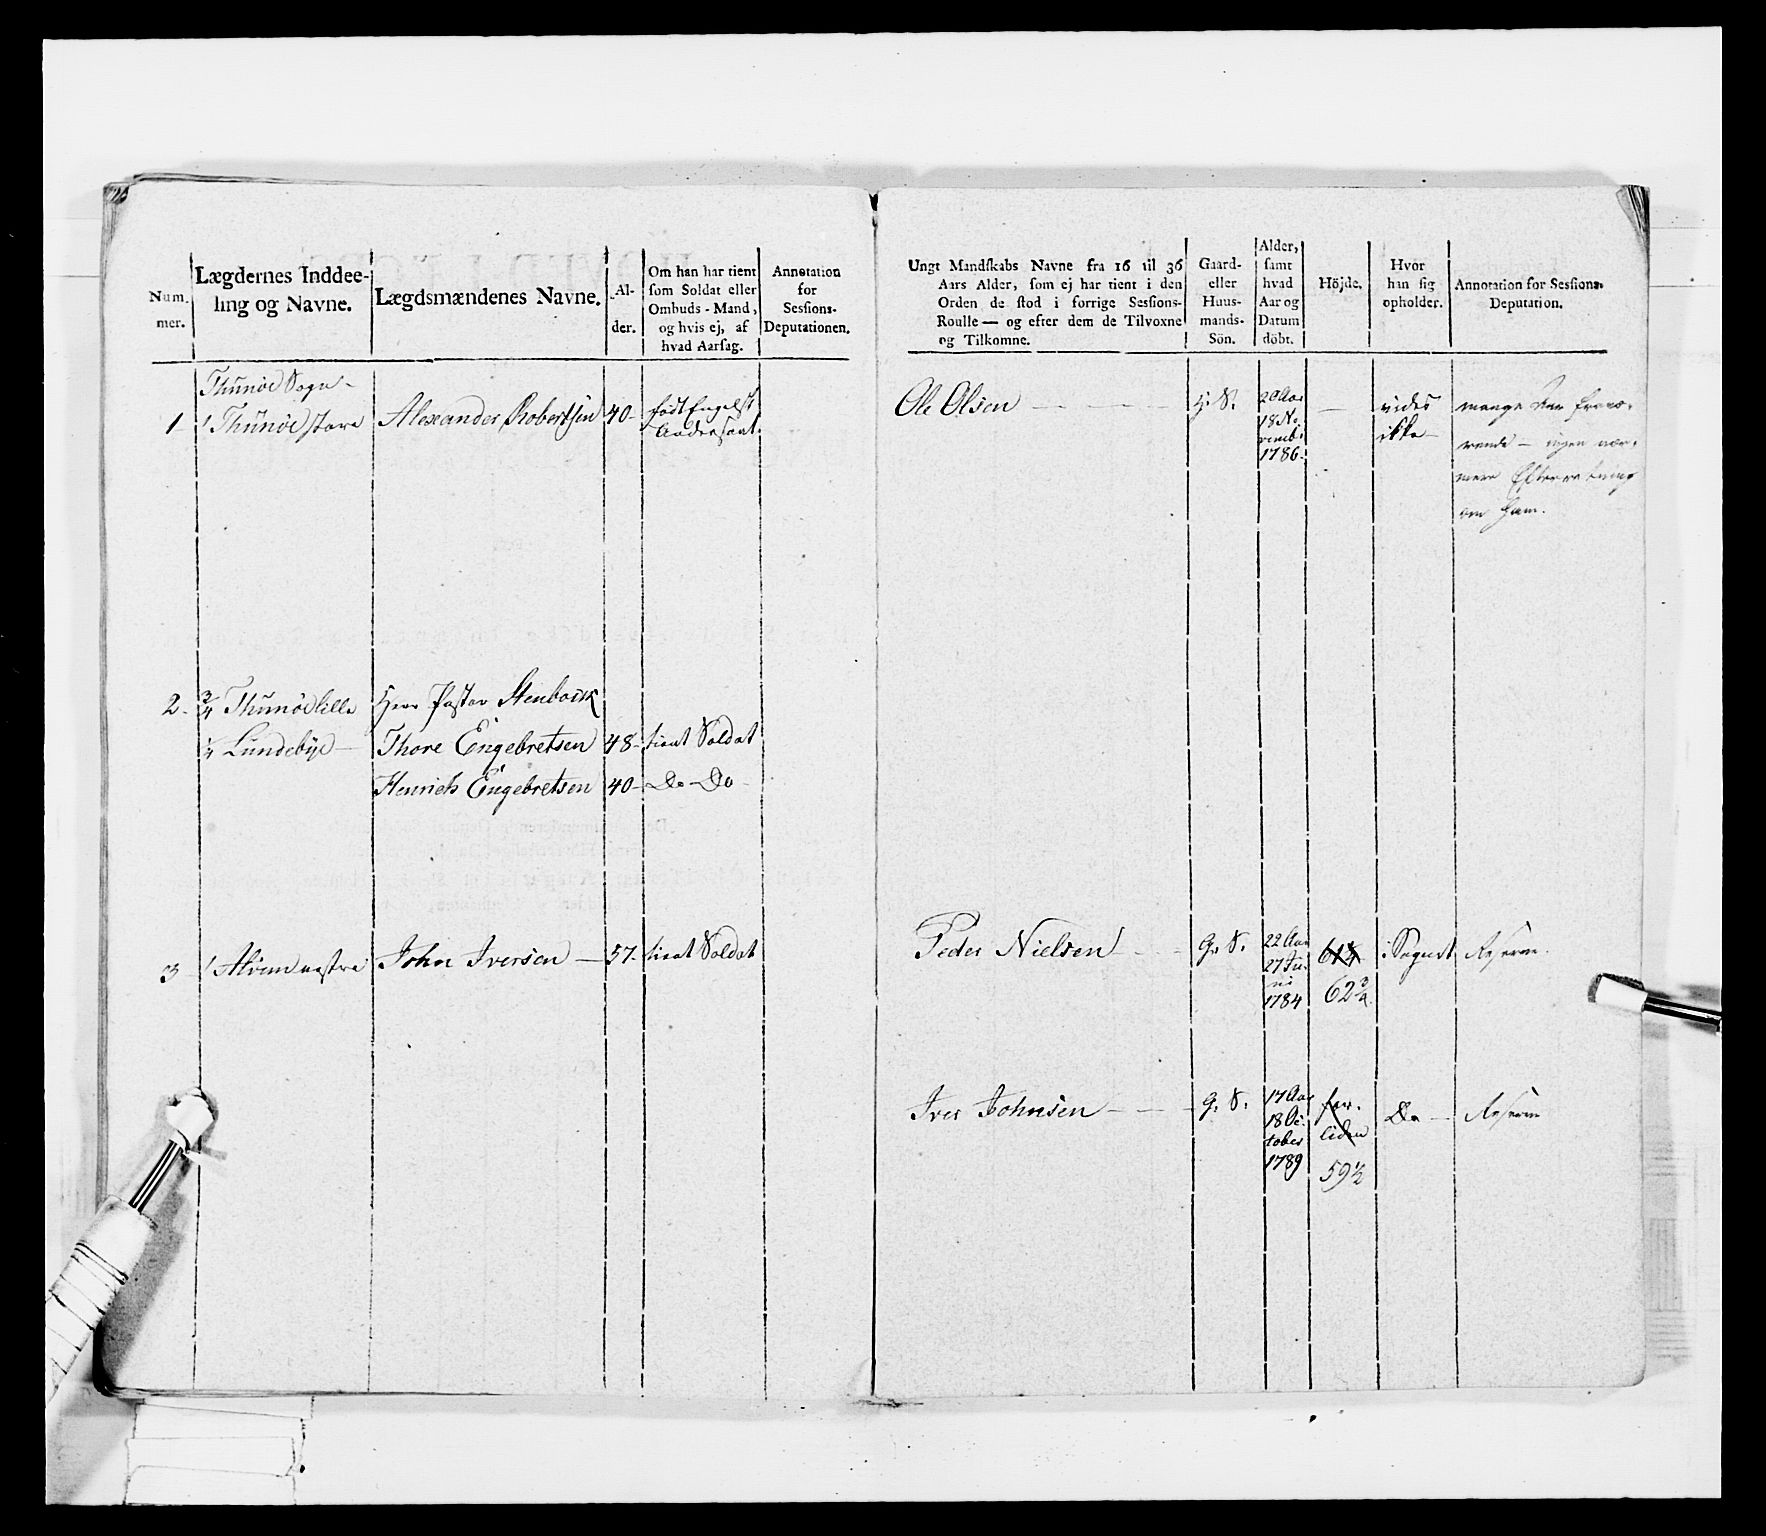 Num-
mer.
Lægdernes Inddee-
ling og Navne.
Lægdsmændenes Navne.
Al-
der.
Om han har tient
som Soldat eller
Ombuds-Mand,
og hvis ej, af
hvad Aarsag.
Annotation
for
Sessions-
Deputationen.
Thunöe Sogn-
1 1 Thunöe store Alexander Robertsen 40-
födt Engelsk
2- 3/4 Thunöe lille Herr Pastor Stenbock
1/4 Lundebÿe- Thore Engebretsen 48- tient Soldat
Henrich Engebretsen 40- Do-Do-
3 1 Alvim vestre John Iversen - 57- tient Soldat
Ungt Mandskabs Navne fra 16 til 36
Aars Alder, som ej har tient i den
Orden de stod i forrige Sessions-
Roulle — og efter dem de Tilvoxne
og Tilkomne.
Gaard-
eller
Huus-
mands-
Sön.
Alder,
samt
hvad
Aar og
Datum
döbt.
Höjde.
Hvor
han sig
opholder.
Annotation for Sessions-
Deputation.
Ole Olsen
H. S.
20 Aar
18 No-
vemb:
1786-
vides
ikke-
mange Aar fravæ-
rende - ingen nær-
mere Efterretning
om ham.
Peder Nielsen
G. S.
22 Aar
27 Ju-
ni
1784
62 3/4.
i Sognet
Reserve.
Iver Johnsen
G. S.
17 Aar
18 Oc-
tober
1789
for-
liden
59 1/2
Do
Reserve